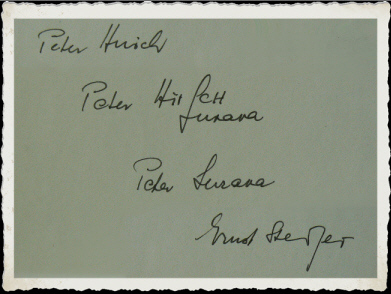 Peter Hirsch
Peter Hirsch
Surava
Peter Surava
Ernst Steiger